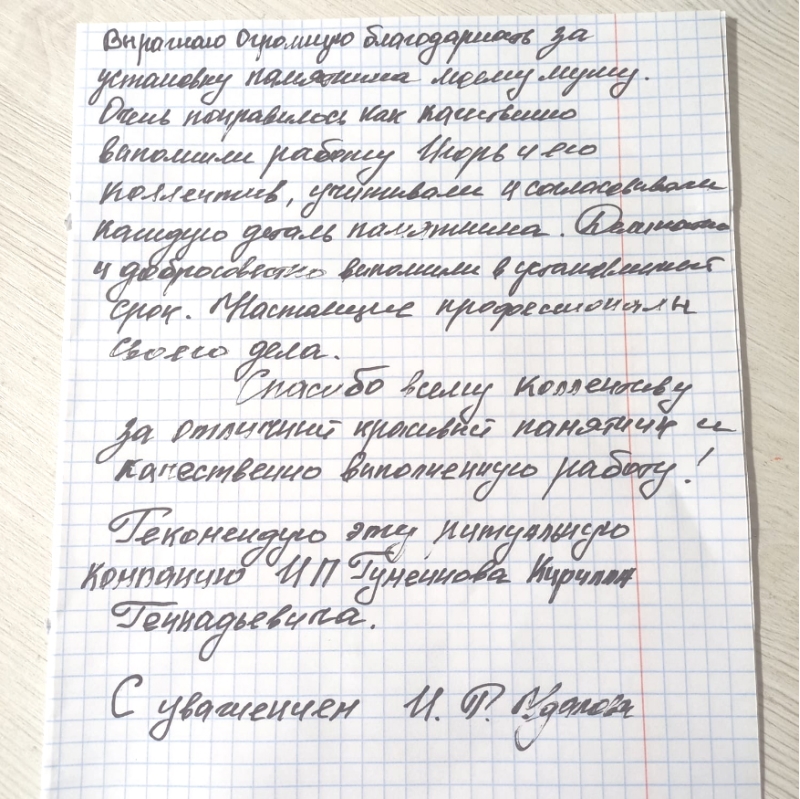 Выражаю огромную благодарность за
установку памятника моему мужу.
Очень понравилось как качественно
выполнили работу Игорь и его
коллектив, учитывали и согласовывали
каждую деталь памятника.
и добросовестно выполнили в установленный
срок. Настоящие профессионалы
своего дела.
Спасибо всему коллективу
за отличный красивый памятник и
качественно выполненную работу!
Рекомендую эту ритуальную
компанию ИП Кирилла
Геннадьевича.
С уважением И. Г.